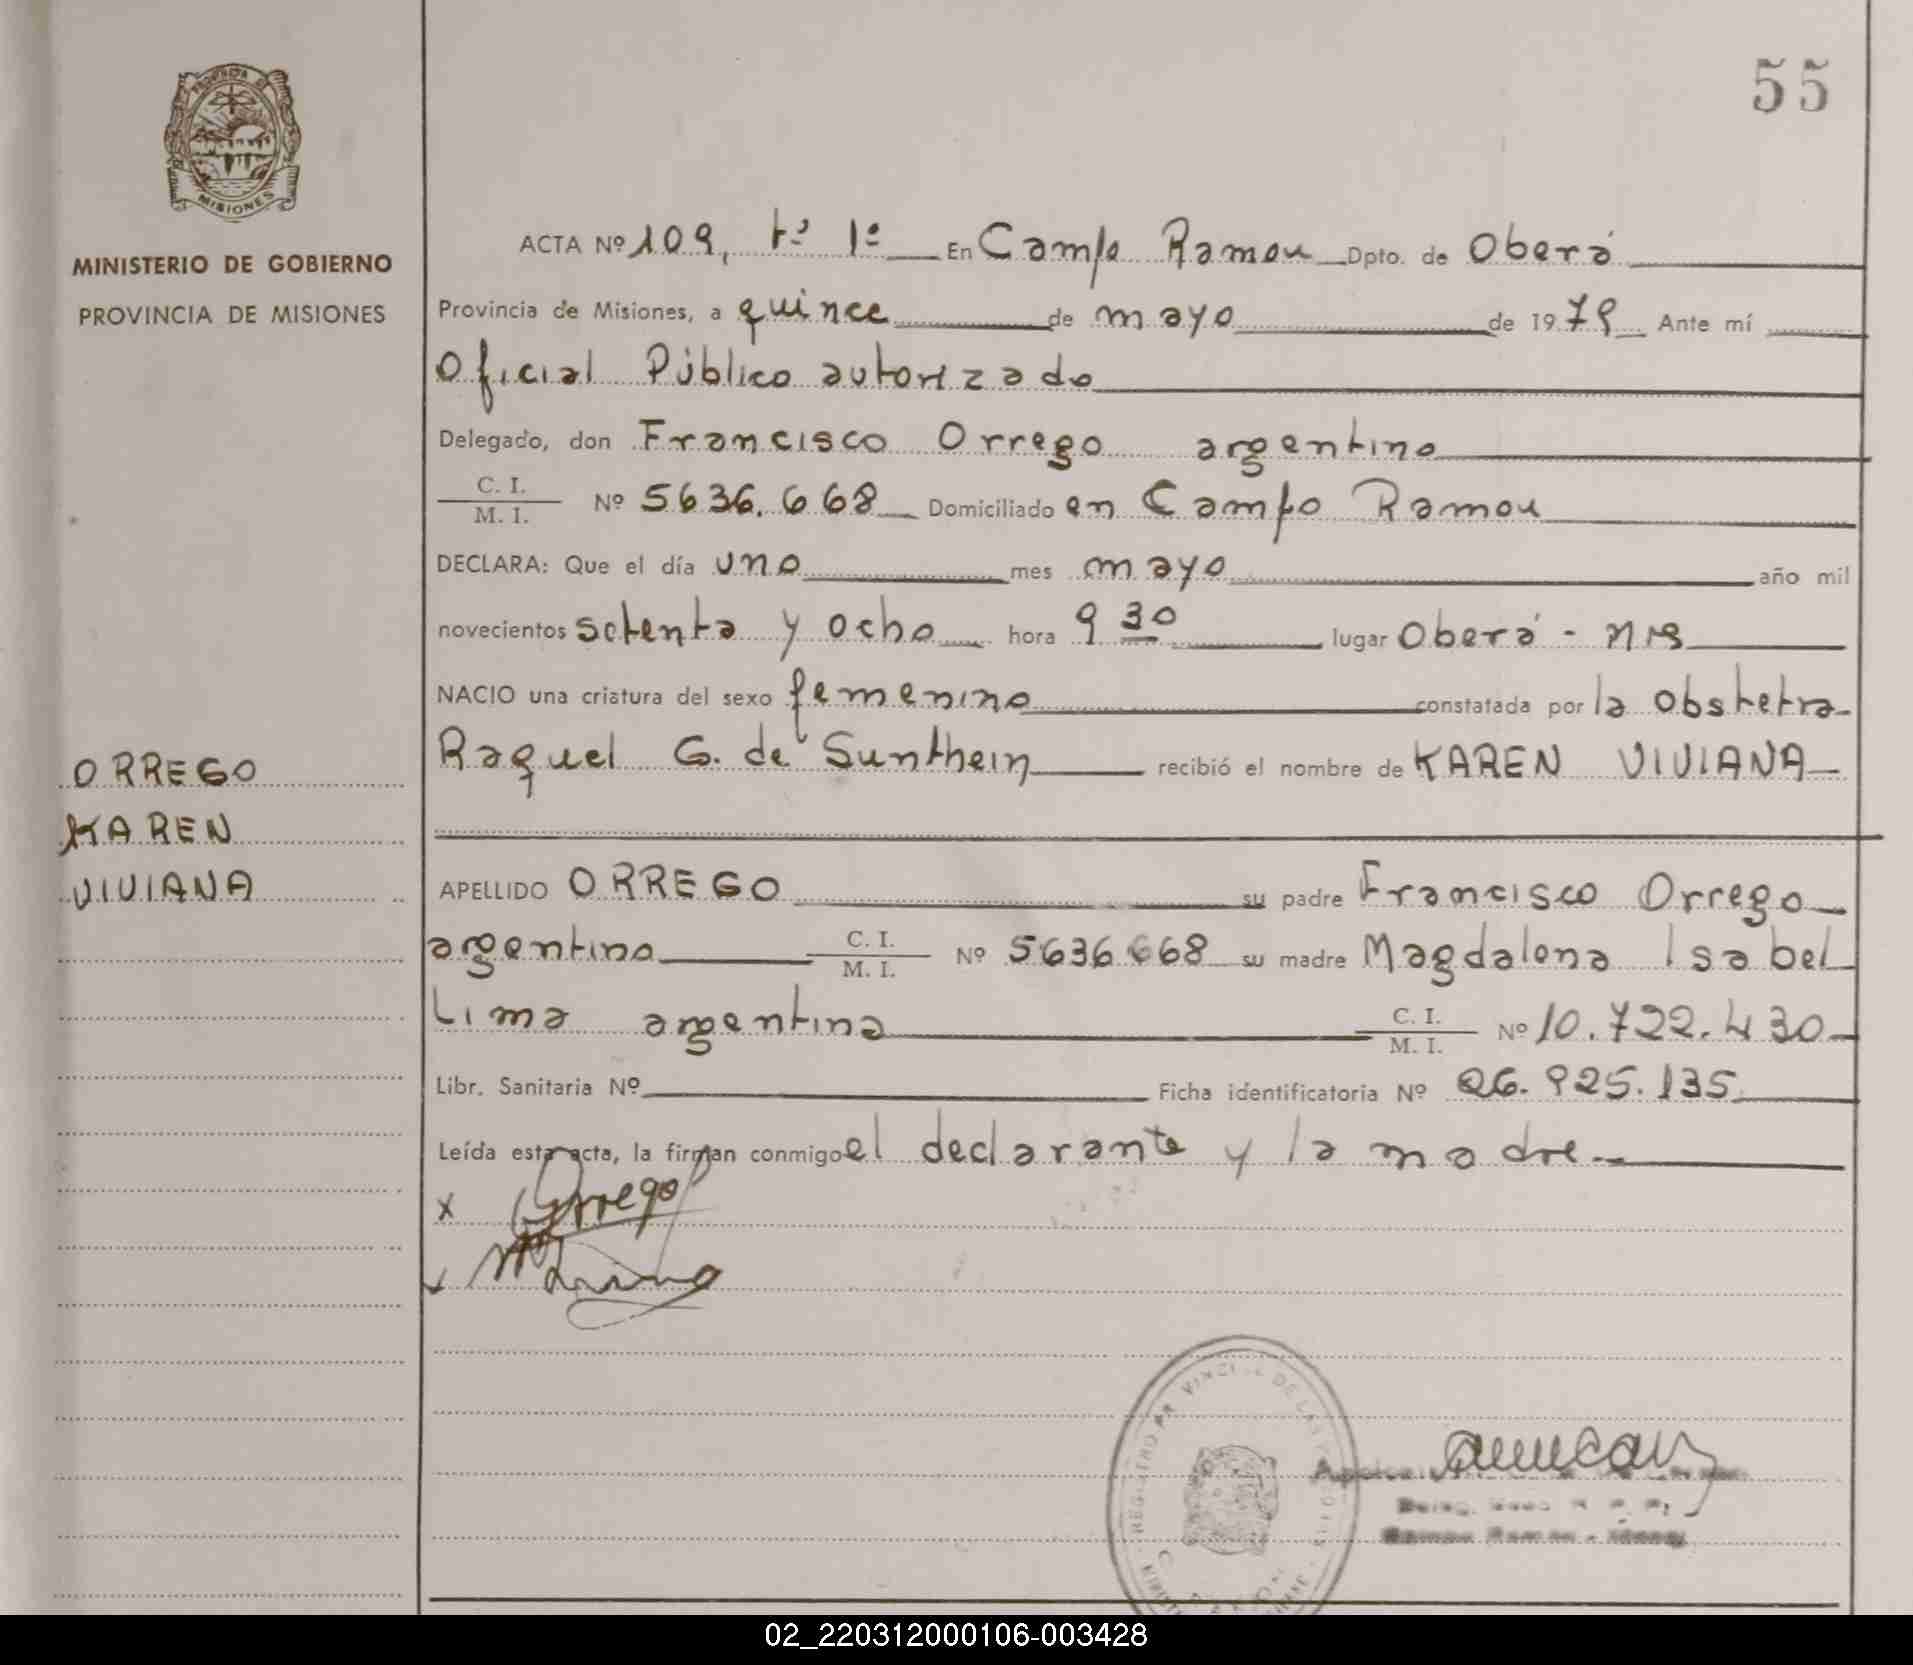 55
PROVINCIA DE
MISIONES
MINISTERIO DE GOBIERNO
PROVINCIA DE MISIONES
ACTA Nº 109, tº 1º En Campo Ramon Dpto. de Oberá
Provincia de Misiones, a quince de mayo de 1979 Ante mí
Oficial Público autorizado
Delegado, don Francisco Orrego argentino
C. I.
M. I. Nº 5636.668 Domiciliado en Campo Ramon
DECLARA: Que el día uno mes mayo año mil
novecientos setenta y ocho hora 9 30 lugar Oberá - Mis
NACIO una criatura del sexo femenino constatada por la obstetra
Raquel G. de Sunthein recibió el nombre de KAREN VIVIANA
ORREGO
KAREN
VIVIANA
APELLIDO ORREGO su padre Francisco Orrego
argentino C. I.
M. I. Nº 5636668 su madre Magdalena Isabel
Lima argentina C. I.
M. I. Nº 10.722.430
Libr. Sanitaria Nº Ficha identificatoria Nº 26.925.135
Leída esta acta, la firman conmigo el declarante y la madre
x Orrego
Lima
REGISTRO PROVINCIAL DE LAS PERSONAS
02_220312000106-003428